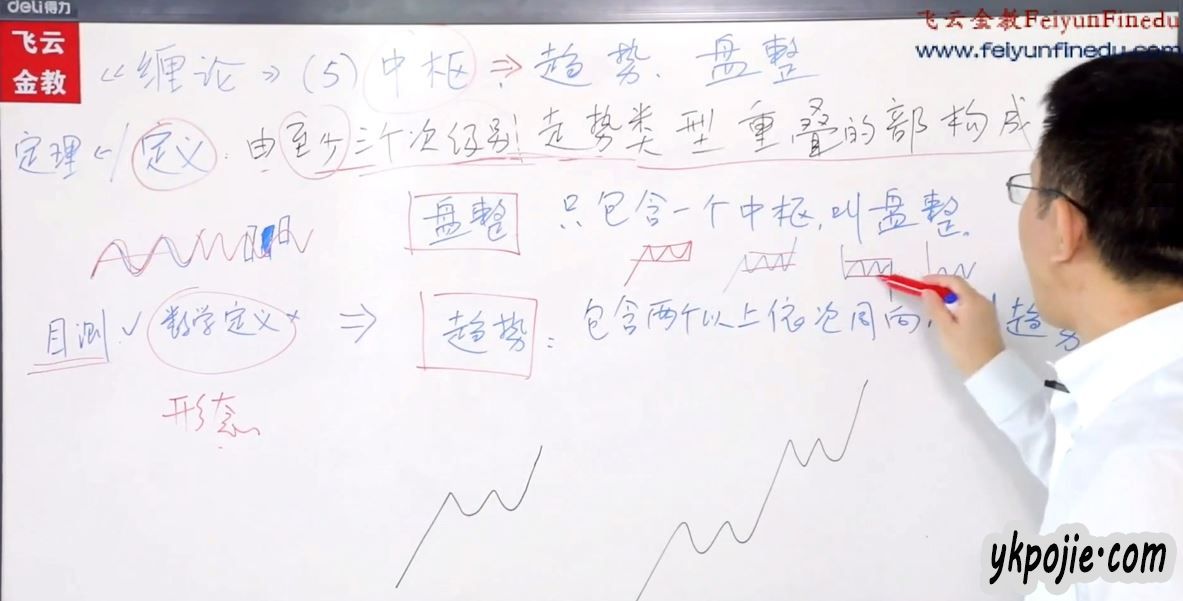 deli得力
飞云
金教
飞云金教FeiyunFinedu
www.feiyunfinedu.com
《缠论》(5) 中枢 ⇒ 趋势、盘整
定理 ← 定义:由至少三个次级别走势类型重叠的部构成
盘整 只包含一个中枢,叫盘整.
目测 ✓ 数学定义 × ⇒ 趋势: 包含两个以上依次同向, 趋势
形态
ykpojie.com